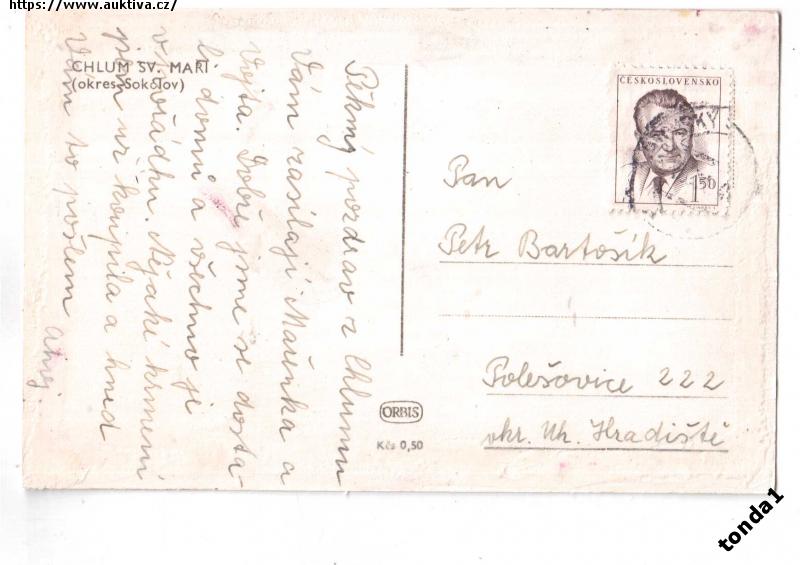 https://www.auktiva.cz/
CHLUM SV. MAŘÍ
(okres Sokolov)
Pěkný pozdrav z Chlumu
Vám zasílají Mařenka a
Vojta. Dobře jsme se dosta-
li domů a všechno je
v pořádku. Nějaké krmení
jsem už koupila a hned
Vám to pošlem
Ahoj
ČESKOSLOVENSKO
1 50
KY
Pan
Petr Bartošík
Polešovice 222
okr. Uh. Hradiště
ORBIS
Kčs 0,50
tonda1